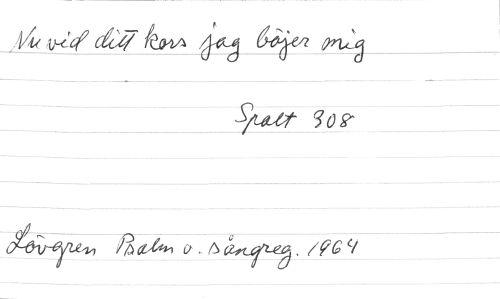 Nu vid ditt kors jag böjer mig
Spalt 308
Lövgren Psalm o. sångreg. 1964